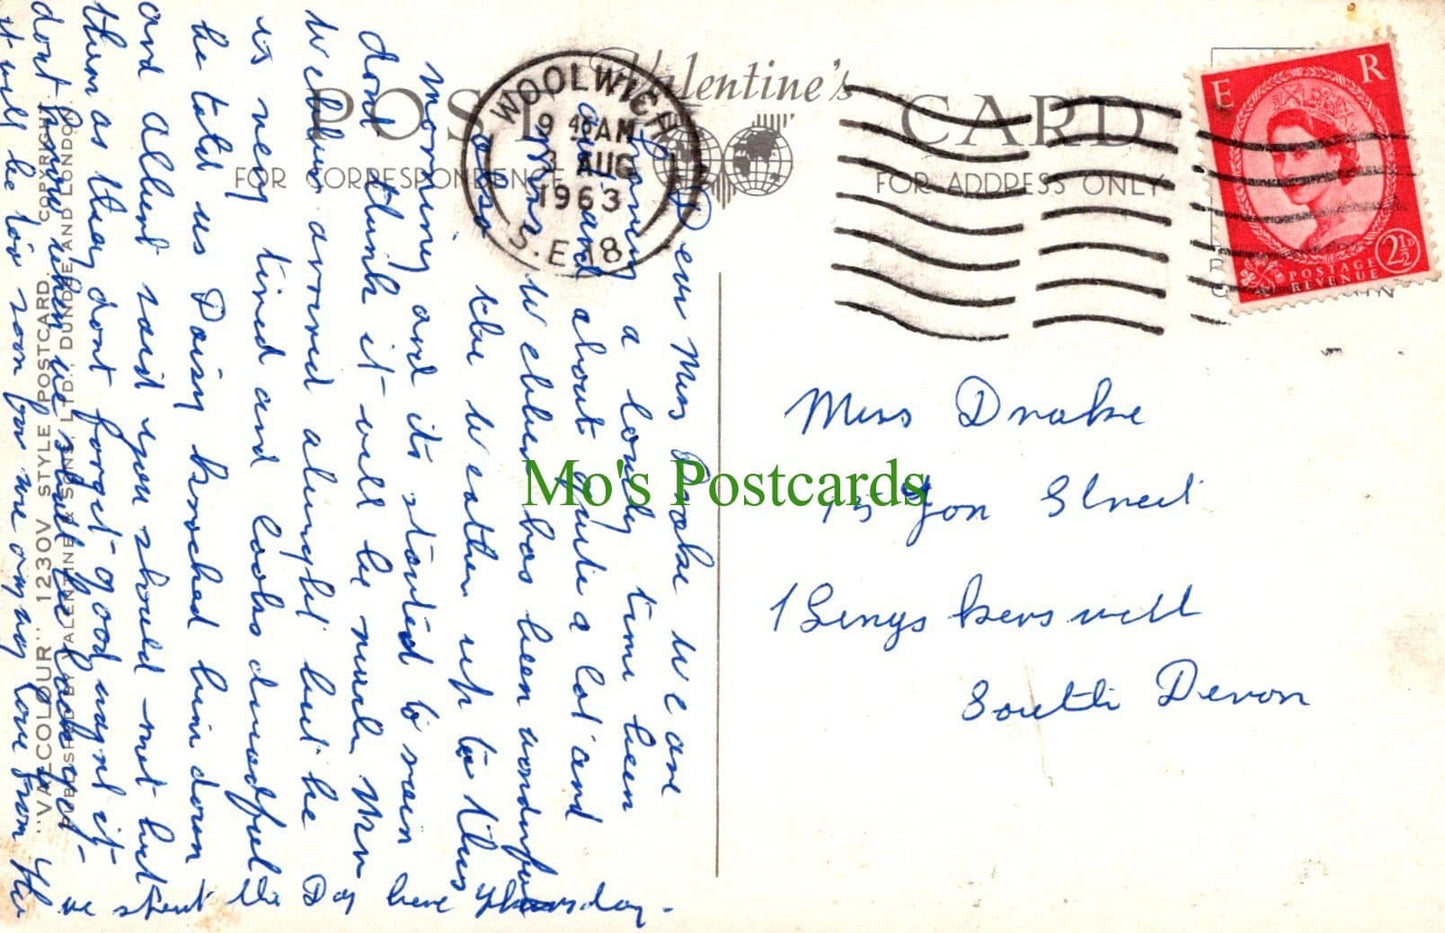 Valentine's
POST CARD
FOR CORRESPONDENCE
FOR ADDRESS ONLY
WOOLWICH
9 45 AM
3 AUG
1963
S.E.18
E R
POSTAGE
REVENUE
2½D
Dear Miss Drake We are
having a lovely time been
out and about quite a lot and
Mrs Webber has been wonderful
also the weather up to this
morning and its started to rain
dont think it will be much Mrs
Webber arrived alright but he
is very tired and looks dreadful
he told us Daisy knocked him down
and Albert said you should not hurt
them as they dont forget good night it
dont know when we shall be back yet
it will be too soon for me anyway love from
we spent the Day here Thursday.
Miss Drake
15 Yon Street
Kingskerswell
South Devon
"VALCOLOUR" 1230V STYLE POSTCARD COPYRIGHT
PUBLISHED BY VALENTINE & SONS, LTD., DUNDEE AND LONDON.
Mo's Postcards